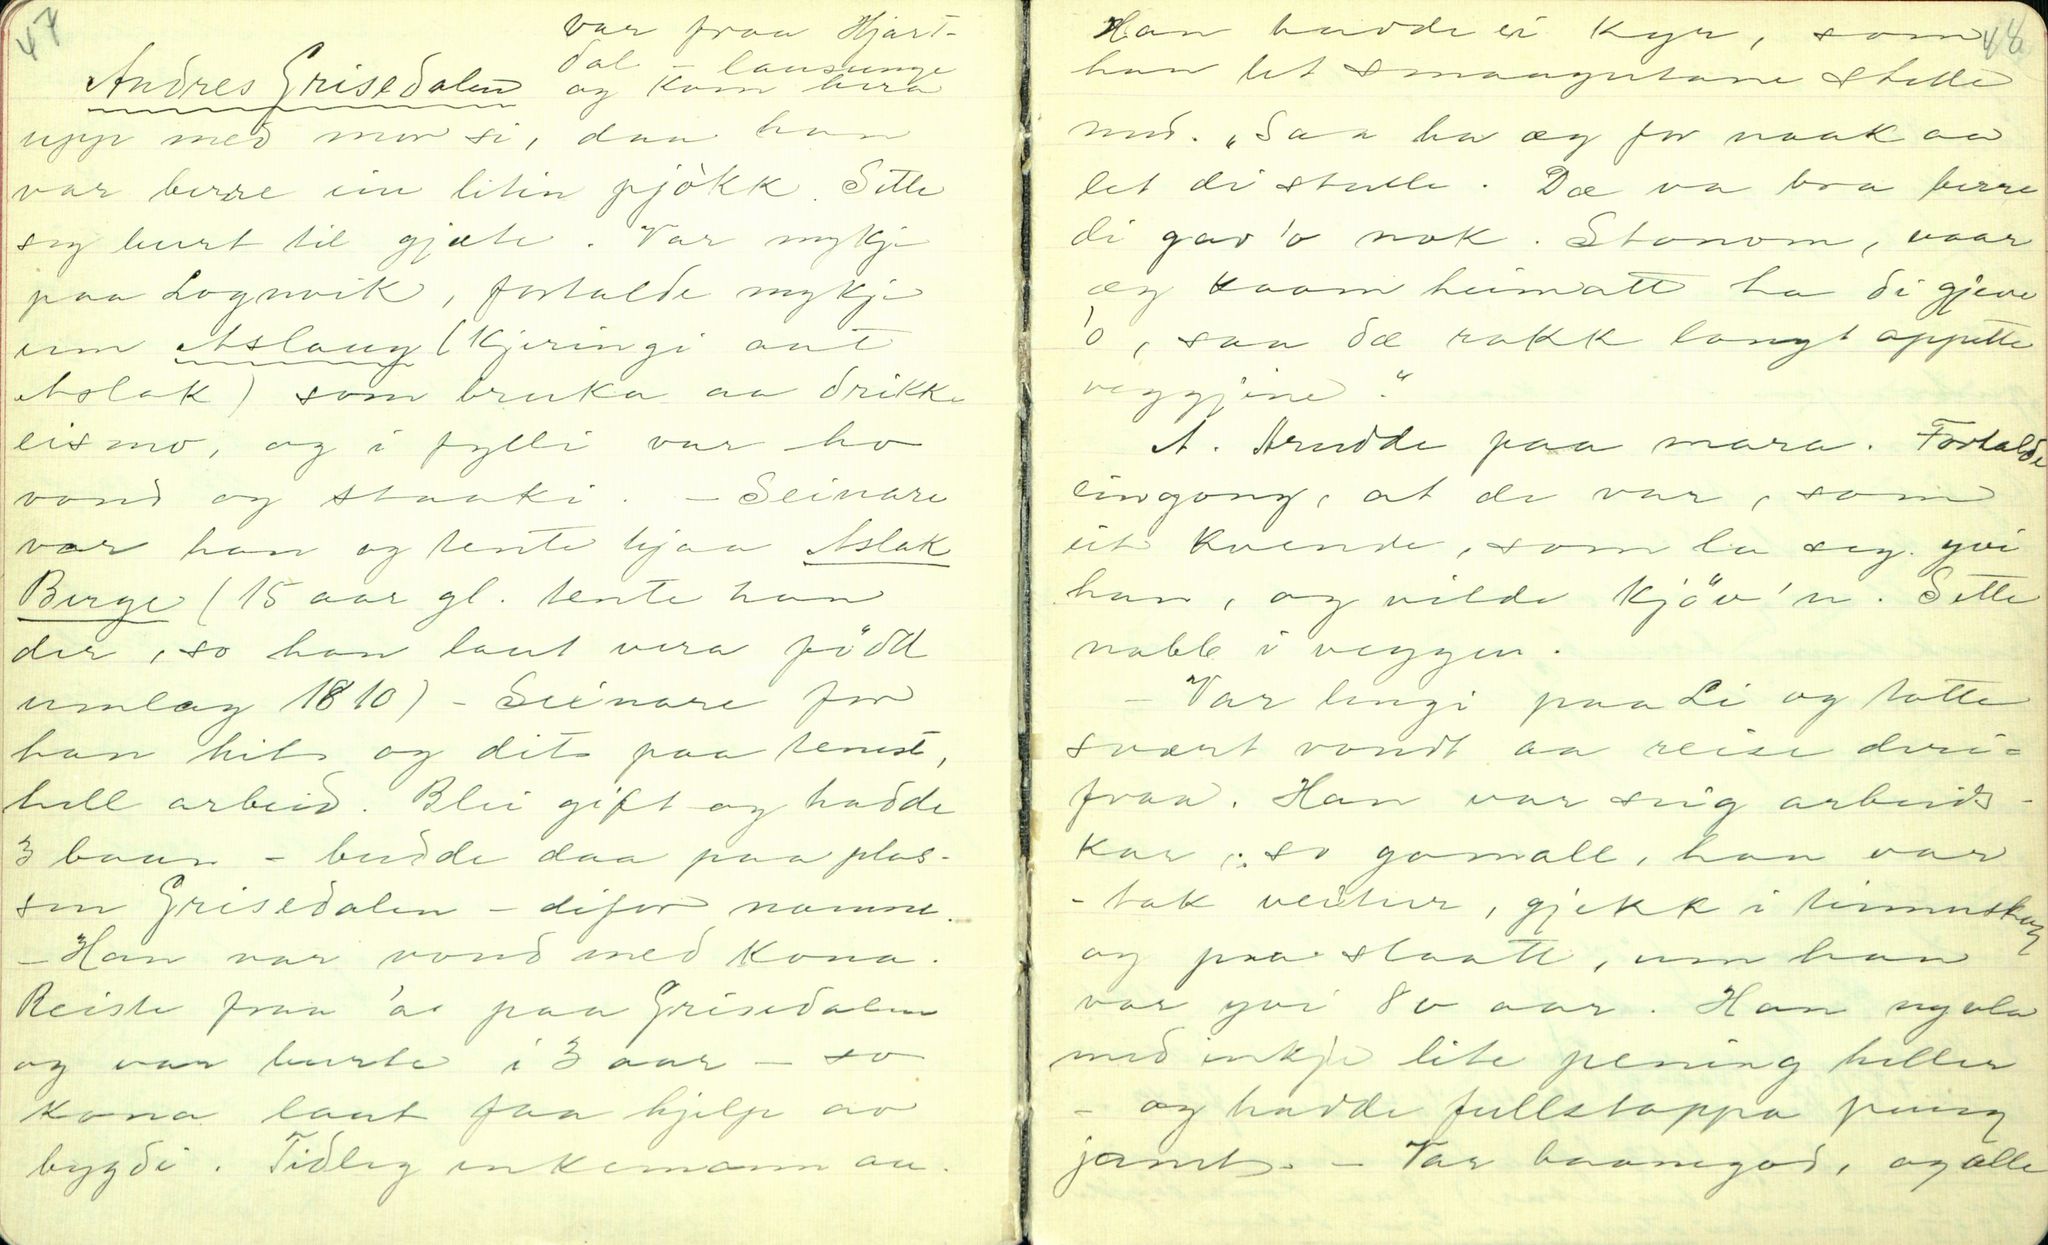 47
var fraa Hjart-
dal - lausunge
Andres Grisedalen og kom hera
upp med mor si, daa han
var berre ein liten pjòkk. Sette
seg burt til gjæte. Var mykje
paa Lognvik, fortalde mykje
um Aslaug (kjeringi aat
Aslak) som bruka aa drikke
eismo, og i fylli var ho
vond og staaki. - Seinare
var han og tente hjaa Aslak
Berge (15 aar gl. tente han
der, so han laut vera född
umlag 1810) - Seinare for
han hit og dit paa tenest,
hell arbeid. Blei gift og hadde
3 baan - budde daa paa plas-
sen Grisedalen - difor namne.
- Han var vond med kona.
Reiste fraa 'ae paa Grisedalen
og var burte i 3 aar - so
kona laut faa hjelp av
bygdi. Tidleg enkemann au.
48
Han hadde ei kyr, som
han let smaagutane stelle
med. "Saa ha æg for naak aa
let di stelle. Dæ va bra berre
di gav 'o nok. Stonom, naar
æg kaam heimatt ha di gjeve
'o, saa dæ rakk langt oppette
veggjine."
A. trudde paa mara. Fortalde
eingong, at de var, som
eit kvende, som la seg yvi
han, og vilde kjöv'n. Sette
nabb i veggen.
- Var lengi paa Li og totte
svært vondt aa reise deri-
fraa. Han var svig arbeids-
kar, so gomall, han var
- tok veitur, gjekk i timmerskog
og paa slaatt, um han
var yvi 80 aar. Han
med inkje lite pening heller
- og hadde fullstappa pung
jamt. - Var baanegod, og alle